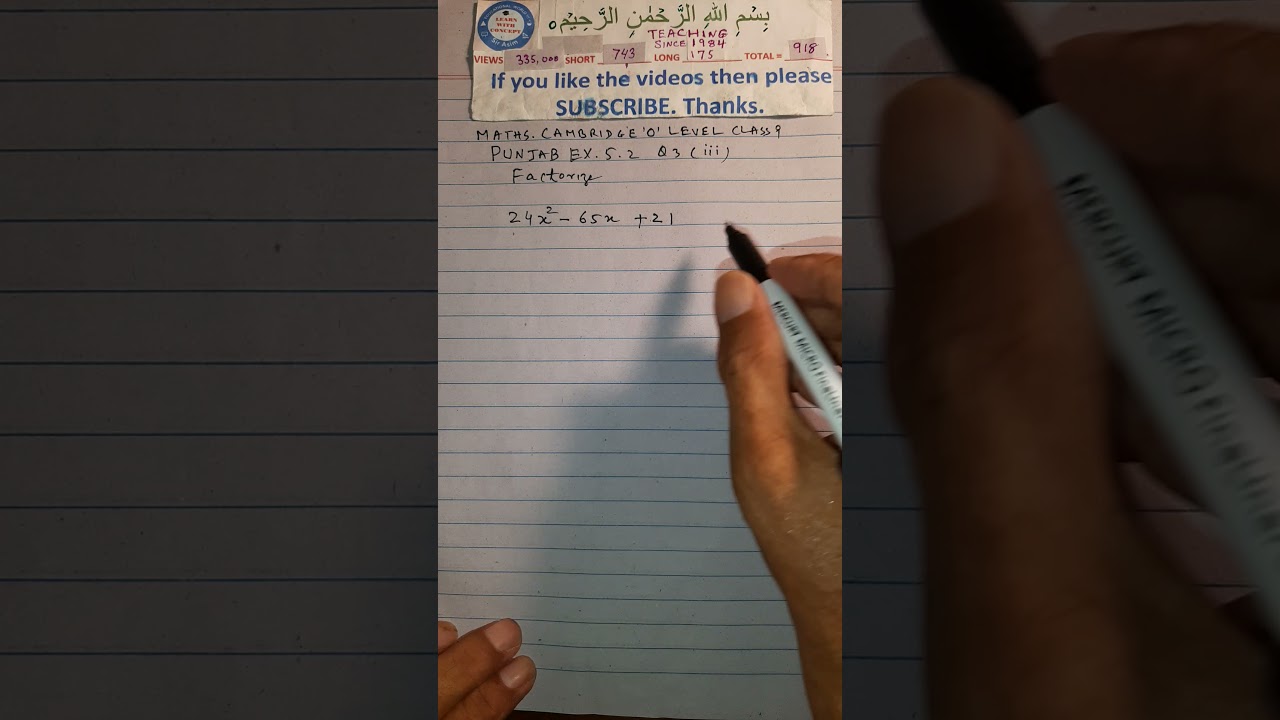 LEARN WITH CONCEPT
Sir Asim
بِسْمِ اللهِ الرَّحْمٰنِ الرَّحِيْمِ
TEACHING
SINCE 1984
VIEWS 335,000 SHORT 743 LONG 175 TOTAL = 918
If you like the videos then please
SUBSCRIBE. Thanks.
MATHS. CAMBRIDGE 'O' LEVEL CLASS 9
PUNJAB EX. 5.2 Q3 (iii)
Factorize
24x² - 65x + 21
MERCURY MICRO